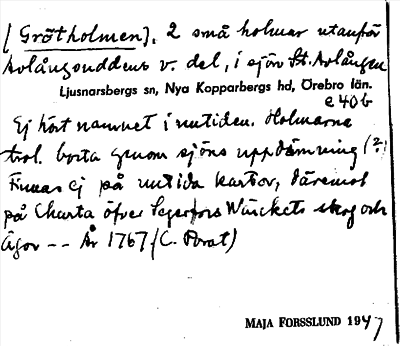 [Grötholmen], 2 små holmar utanför
Avlångsuddens v. del, i sjön St. Avlången
Ljusnarsbergs sn, Nya Kopparbergs hd, Örebro län.
e 40 b
Ej hört namnet i nutiden. Holmarna
trol. borta genom sjöns uppdämning (?)
Finnas ej på nutida kartor, däremot
på Charta öfver Segerfors Wärckets skog och
Ägor -- År 1767 (C. Porat)
MAJA FORSSLUND 1947